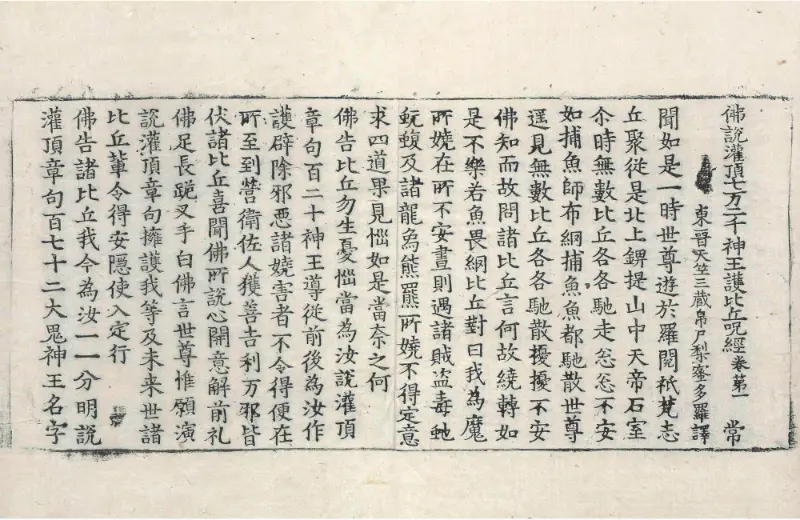 佛說灌頂七万二千神王護比丘呪經卷第一 常
東晉天竺三蔵帛尸梨蜜多羅譯
聞如是一時世尊遊於羅閱祇梵志
丘聚從是北上錍提山中天帝石室
尒時無數比丘各各馳走忩忩不安
如捕魚師布網捕魚魚都馳散世尊
遥見無數比丘各各馳散擾擾不安
佛知而故問諸比丘言何故繞轉如
是不樂若魚畏網比丘對曰我為魔
所嬈在所不安晝則遇諸賊盜毒虵
蚖蝮及諸龍烏熊羆所嬈不得定意
求四道果見惱如是當奈之何
佛告比丘勿生憂惱當為汝說灌頂
章句百二十神王導從前後為汝作
護辟除邪惡諸嬈害者不令得便在
所至到營衛佐人獲善吉利万邪皆
伏諸比丘喜聞佛所說心開意解前礼
佛足長跪叉手白佛言世尊惟願演
說灌頂章句擁護我等及未来世諸
比丘輩令得安隱使入定行
佛告諸比丘我今為汝一一分明說
灌頂章句百七十二大鬼神王名字